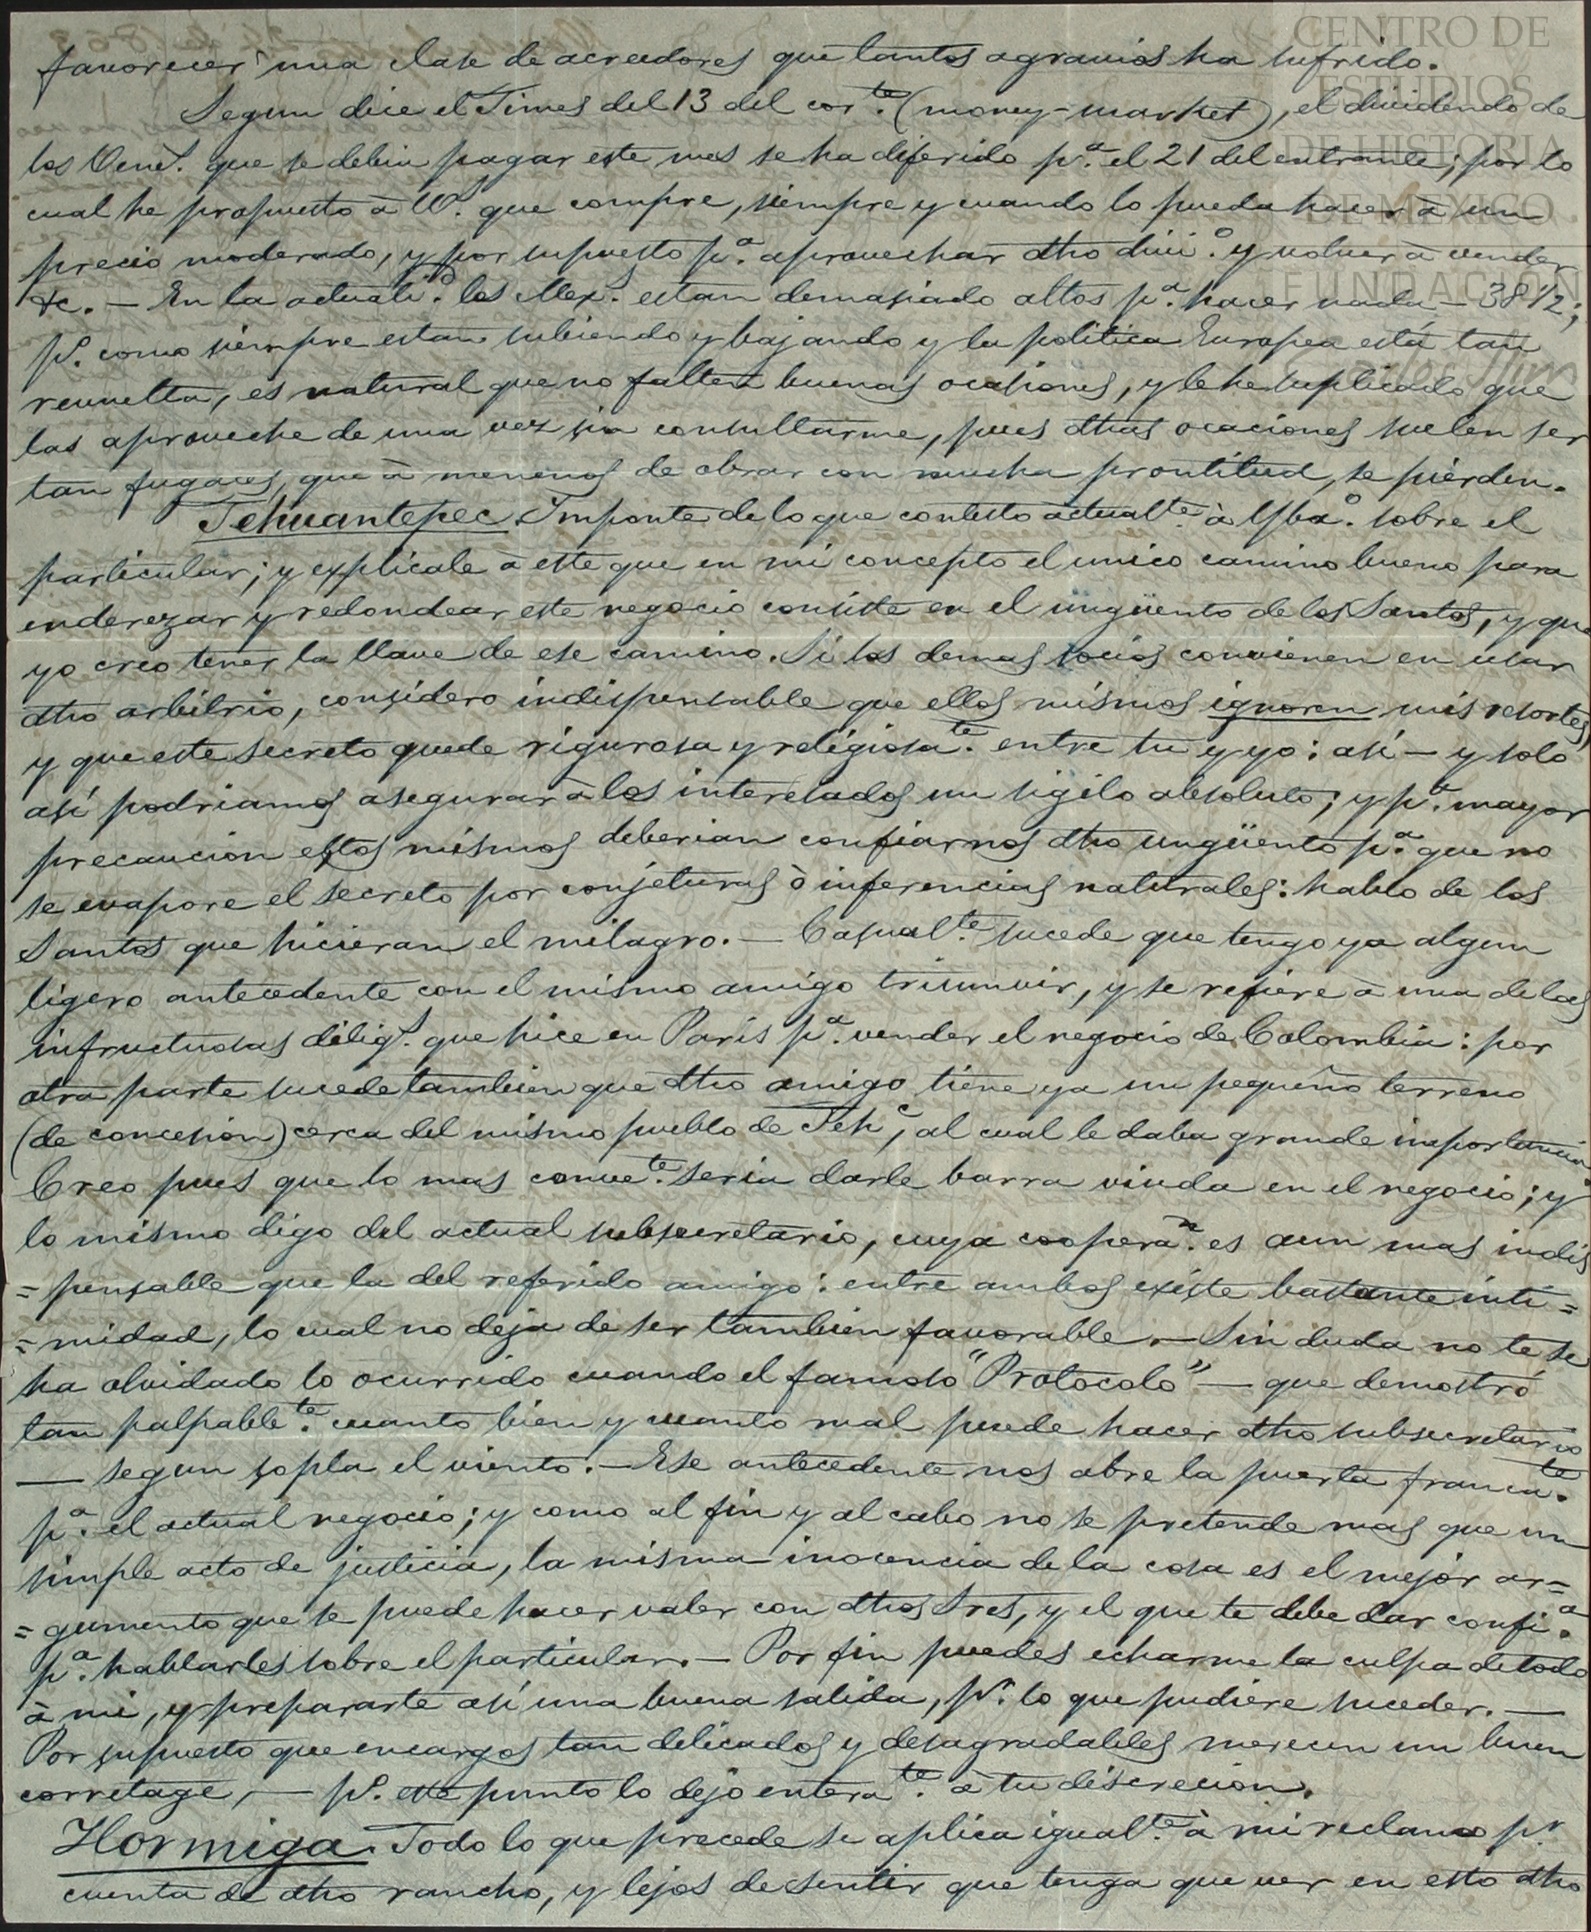 CENTRO DE
ESTUDIOS
DE HISTORIA
DE MÉXICO
FUNDACIÓN
Carlos Slim
favorecer una clase de acreedores que tantos agravios ha sufrido.
Segun dice el Times del 13 del cor.te (money-market), el dividendo de
los Vene.s que se debia pagar este mes se ha diferido p.a el 21 del entrante; por lo
cual he propuesto à W.s que compre, siempre y cuando lo pueda hacer à un
precio moderado, y por supuesto p.a aprovechar dho divi.o y volver à vender
&c. — En la actuali.d los Mex.s estan demasiado altos p.a hacer nada — 38 1/2;
p.o como siempre estan subiendo y bajando y la politica Europea está tan
revuelta, es natural que no falten buenas ocasiones, y le he suplicado que
las aproveche de una vez sin consultarme, pues dhas ocaciones suelen ser
tan fugaces, que à menenos de obrar con mucha prontitud, se pierden.
Tehuantepec. Imponte de lo que contesto actual.te à Yba.o sobre el
particular; y explicale à este que en mi concepto el unico camino bueno para
enderezar y redondear este negocio consiste en el ungüento de los Santos, y que
yo creo tener la llave de ese camino. Si los demas socios convienen en usar
dho arbitrio, considero indispensable que ellos mismos ignoren mis resortes,
y que este secreto quede rigurosa y religiosa.te entre tu y yo: asi — y solo
asi podriamos asegurar à los interesados un sigilo absoluto; y p.a mayor
precaucion estos mismos deberian confiarnos dho ungüento p.a que no
se evapore el secreto por conjeturas ò inferencias naturales: hablo de los
Santos que hicieran el milagro. — Casual.te sucede que tengo ya algun
ligero antecedente con el mismo amigo triunvir, y se refiere à una de las
infructuosas dilig.s que hice en Paris p.a vender el negocio de Colombia: por
otra parte sucede tambien que dho amigo tiene ya un pequeño terreno
(de concesion) cerca del mismo pueblo de Teh.c, al cual le daba grande importancia
Creo pues que lo mas conve.te seria darle barra viuda en el negocio; y
lo mismo digo del actual subsecretario, cuya coopera.n es aun mas indis
=pensable que la del referido amigo: entre ambos existe bastante inti=
=midad, lo cual no deja de ser tambien favorable. — Sin duda no te se
ha olvidado lo ocurrido cuando el famoso "Protocolo" — que demostró
tan palpable.te cuanto bien y cuanto mal puede hacer dho subsecretario
— segun sopla el viento. — Ese antecedente nos abre la puerta franca.te
p.a el actual negocio; y como al fin y al cabo no se pretende mas que un
simple acto de justicia, la misma inocencia de la cosa es el mejor ar=
=gumento que se puede hacer valer con dhos Sres, y el que te debe dar confi.a
p.a hablarles sobre el particular. — Por fin puedes echarme la culpa de todo
à mi, y prepararte asi una buena salida, p.r lo que pudiere suceder. —
Por supuesto que encargos tan delicados y desagradables merecen un buen
corretage, — p.o este punto lo dejo entera.te à tu discrecion.
Hormiga. Todo lo que precede se aplica igual.te à mi reclamo p.r
cuenta de dho rancho, y lejos de sentir que tenga que ver en esto dho